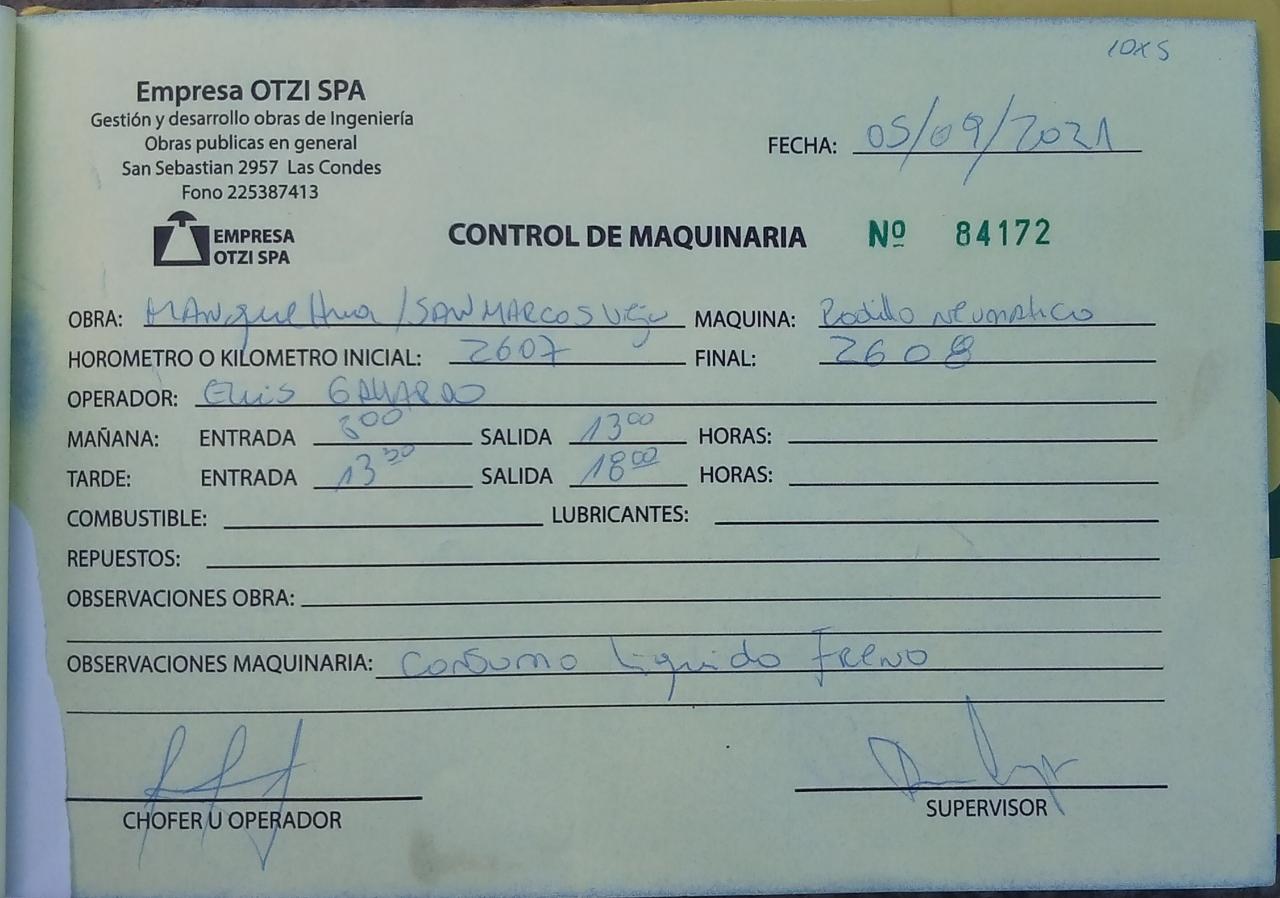 10x5
Empresa OTZI SPA
Gestión y desarrollo obras de Ingeniería
Obras publicas en general
San Sebastian 2957 Las Condes
Fono 225387413
FECHA: 05/09/2021
EMPRESA
OTZI SPA
CONTROL DE MAQUINARIA Nº 84172
OBRA: MANquehua /SAN MARCOS Viejo MAQUINA: Rodillo neumatico
HOROMETRO O KILOMETRO INICIAL: 2607 FINAL: 2608
OPERADOR: GALLARDO
MAÑANA: ENTRADA 800 SALIDA 1300 HORAS:
TARDE: ENTRADA 1330 SALIDA 1800 HORAS:
COMBUSTIBLE: LUBRICANTES:
REPUESTOS:
OBSERVACIONES OBRA:
OBSERVACIONES MAQUINARIA: Consumo liquido Freno
CHOFER U OPERADOR
SUPERVISOR